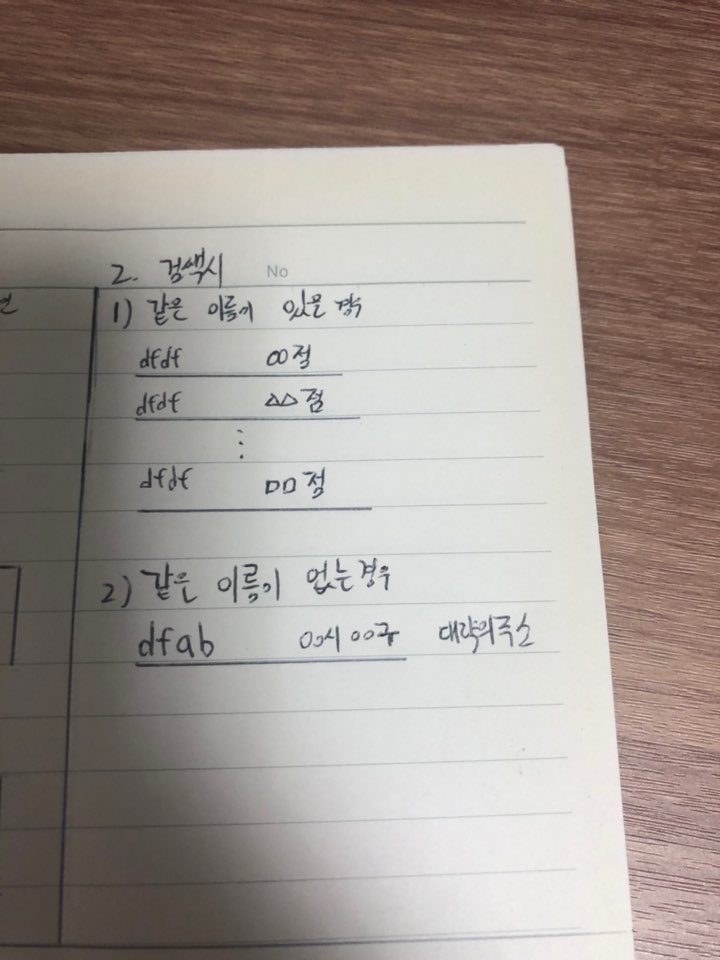 2. 검색시 No
1) 같은 이름이 있을 경우
dfdf ㅇㅇ점
dfdf △△점
⋮
dfdf □□점
2) 같은 이름이 없는경우
dfab ㅇㅇ시 ㅇㅇ구 대략의주소